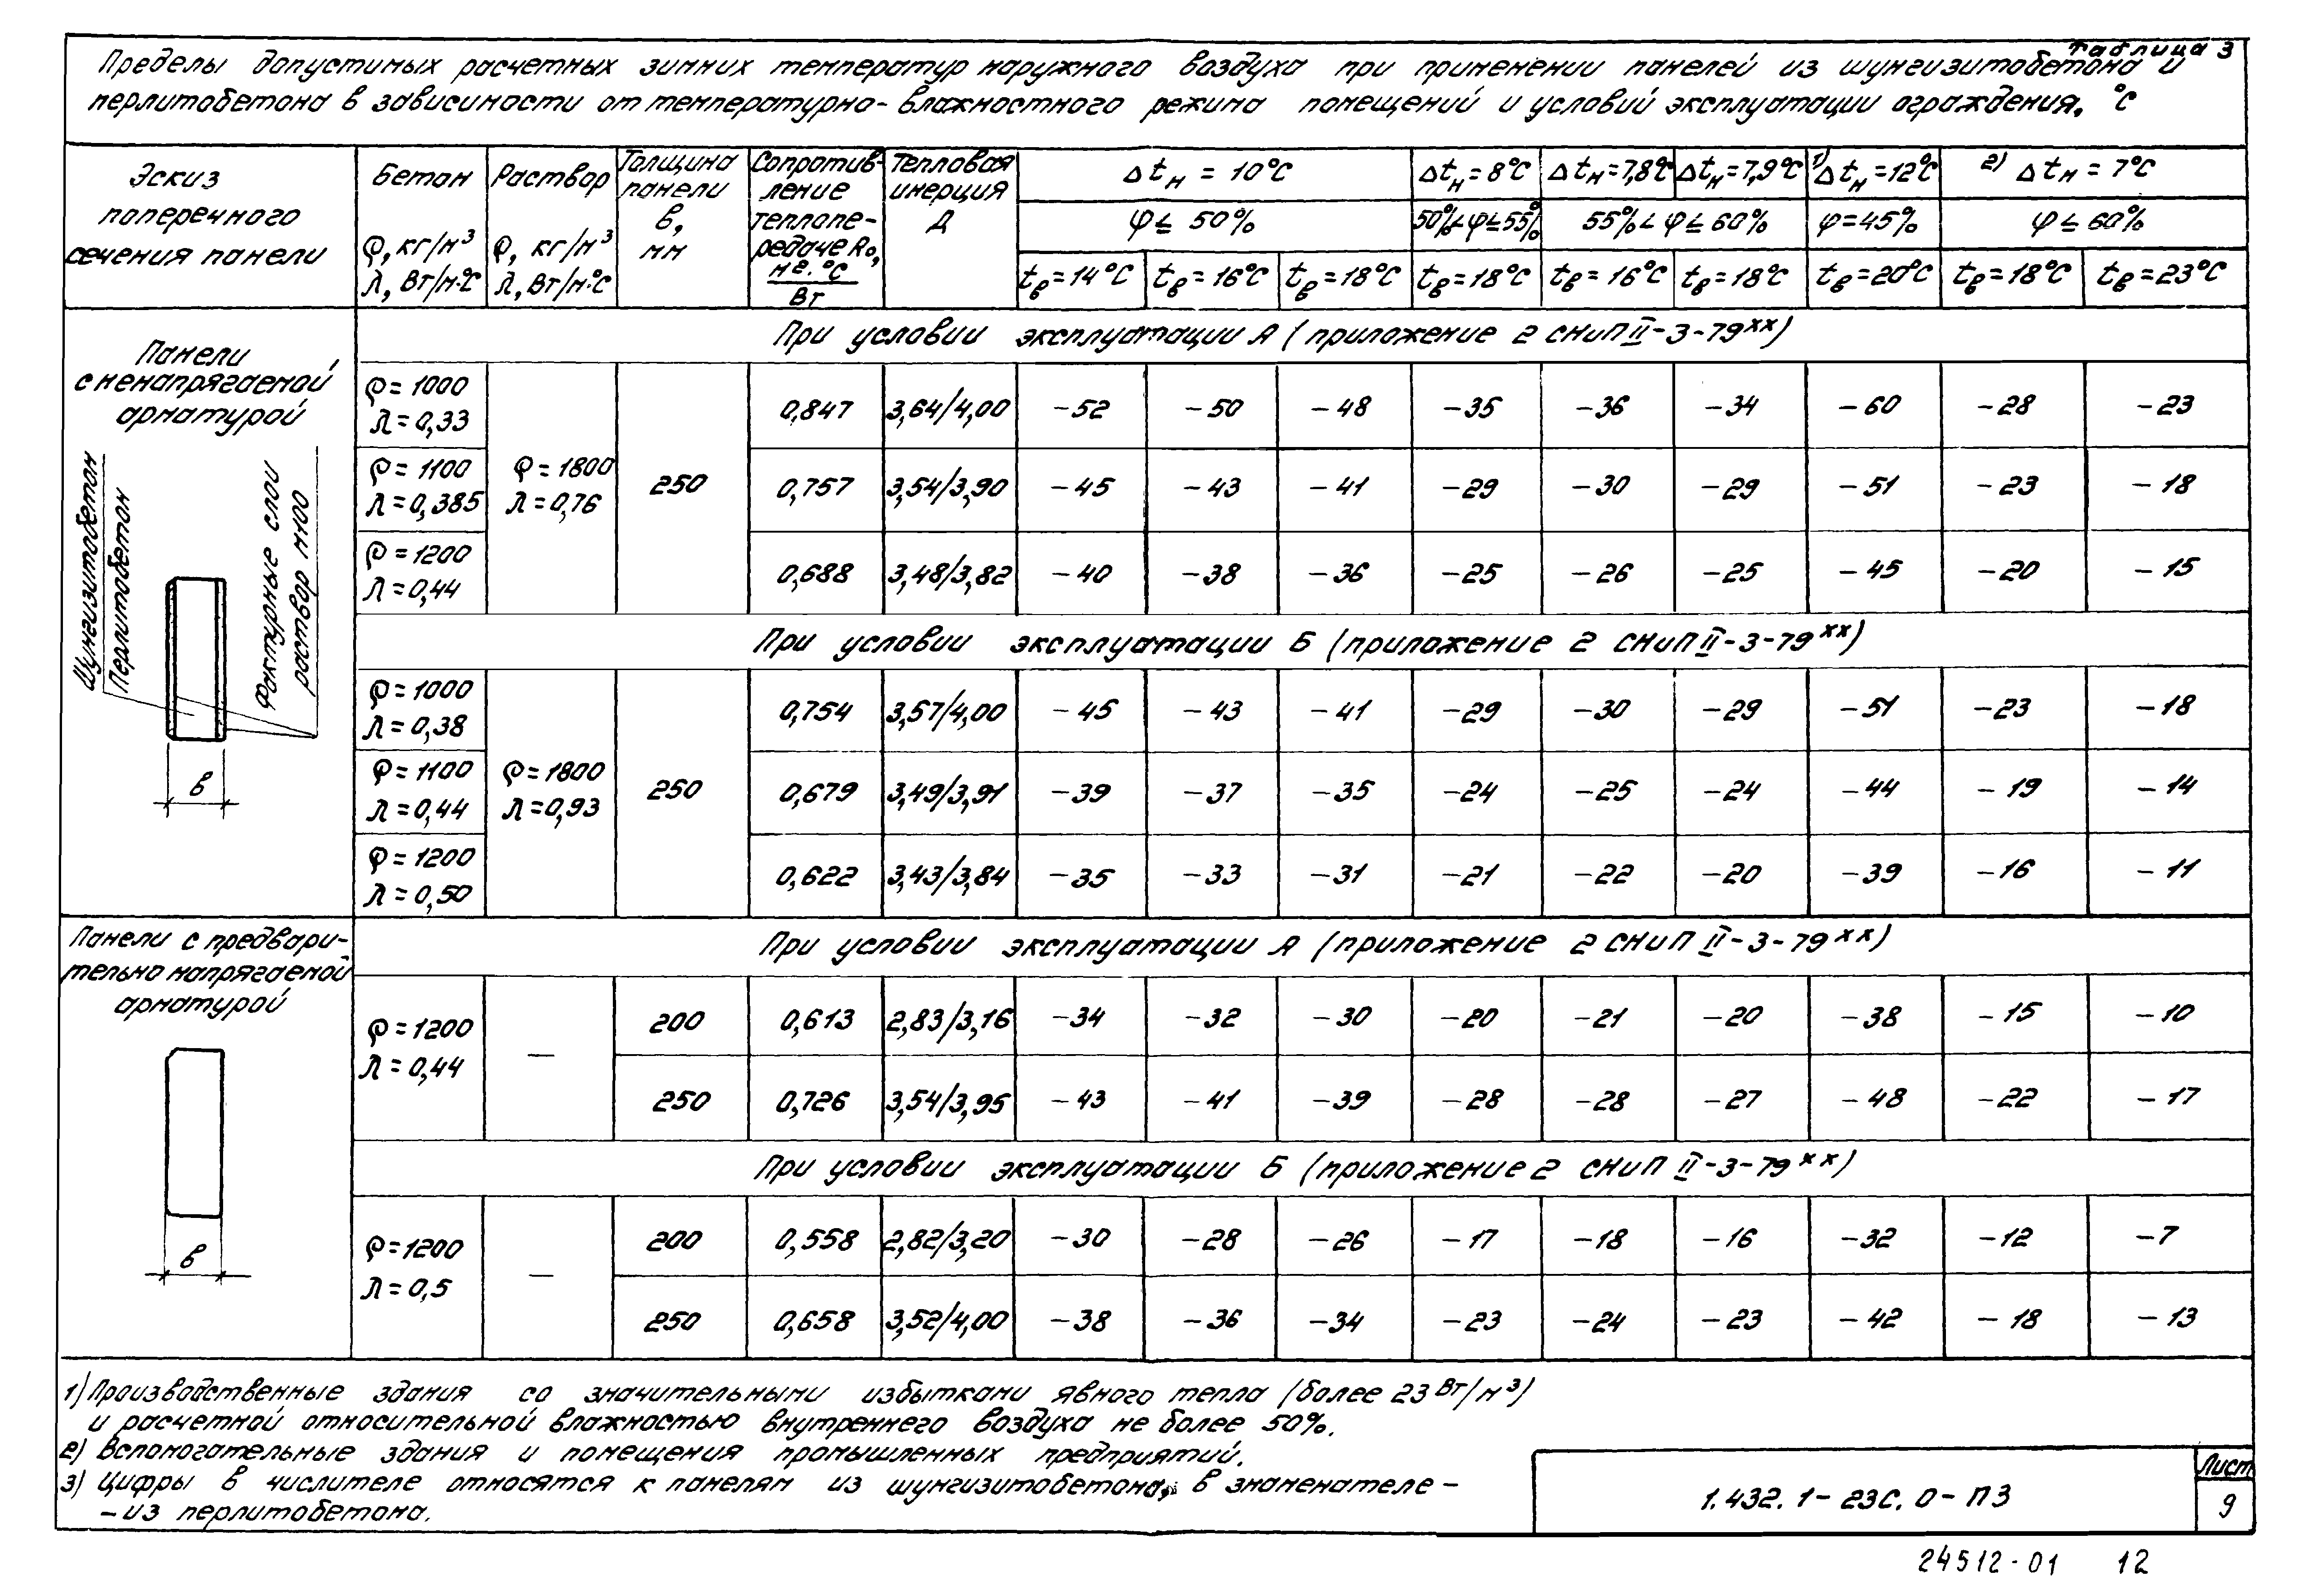 Таблица 3
Пределы допустимых расчетных зимних температур наружного воздуха при применении панелей из шунгизитобетона и
перлитобетона в зависимости от температурно-влажностного режима помещений и условий эксплуатации ограждения, °С
Эскиз поперечного сечения панели
Бетон ρ, кг/м³ λ, Вт/м·°С
Раствор ρ, кг/м³ λ, Вт/м·°С
Толщина панели в, мм
Сопротивление теплопередаче Ro, м²·°С/Вт
Тепловая инерция Д
Δtн = 10°С Δtн = 8°С Δtн = 7,8°С Δtн = 7,9°С 1) Δtн = 12°С 2) Δtн = 7°С
φ ≤ 50% 50% < φ ≤ 55% 55% < φ ≤ 60% φ = 45% φ ≤ 60%
tв = 14°С tв = 16°С tв = 18°С tв = 18°С tв = 16°С tв = 18°С tв = 20°С tв = 18°С tв = 23°С
Панели
с ненапрягаемой
арматурой
Шунгизитобетон
Перлитобетон
Фактурные слои
раствор М100
в
При условии эксплуатации А (приложение 2 СНиП II-3-79хх)
ρ = 1000 λ = 0,33 ρ = 1800 λ = 0,76 250 0,847 3,64/4,00 -52 -50 -48 -35 -36 -34 -60 -28 -23
ρ = 1100 λ = 0,385 0,757 3,54/3,90 -45 -43 -41 -29 -30 -29 -51 -23 -18
ρ = 1200 λ = 0,44 0,688 3,48/3,82 -40 -38 -36 -25 -26 -25 -45 -20 -15
При условии эксплуатации Б (приложение 2 СНиП II-3-79хх)
ρ = 1000 λ = 0,38 ρ = 1800 λ = 0,93 250 0,754 3,57/4,00 -45 -43 -41 -29 -30 -29 -51 -23 -18
ρ = 1100 λ = 0,44 0,679 3,49/3,91 -39 -37 -35 -24 -25 -24 -44 -19 -14
ρ = 1200 λ = 0,50 0,622 3,43/3,84 -35 -33 -31 -21 -22 -20 -39 -16 -11
Панели с предвари-
тельно напрягаемой
арматурой
в
При условии эксплуатации А (приложение 2 СНиП II-3-79хх)
ρ = 1200 λ = 0,44 — 200 0,613 2,83/3,16 -34 -32 -30 -20 -21 -20 -38 -15 -10
250 0,726 3,54/3,95 -43 -41 -39 -28 -28 -27 -48 -22 -17
При условии эксплуатации Б (приложение 2 СНиП II-3-79хх)
ρ = 1200 λ = 0,5 — 200 0,558 2,82/3,20 -30 -28 -26 -17 -18 -16 -32 -12 -7
250 0,658 3,52/4,00 -38 -36 -34 -23 -24 -23 -42 -18 -13
1) Производственные здания со значительными избытками явного тепла (более 23 Вт/м³)
и расчетной относительной влажностью внутреннего воздуха не более 50%.
2) Вспомогательные здания и помещения промышленных предприятий.
3) Цифры в числителе относятся к панелям из шунгизитобетона, в знаменателе -
- из перлитобетона.
1.432.1-23С.0-ПЗ
Лист
9
24512-01 12